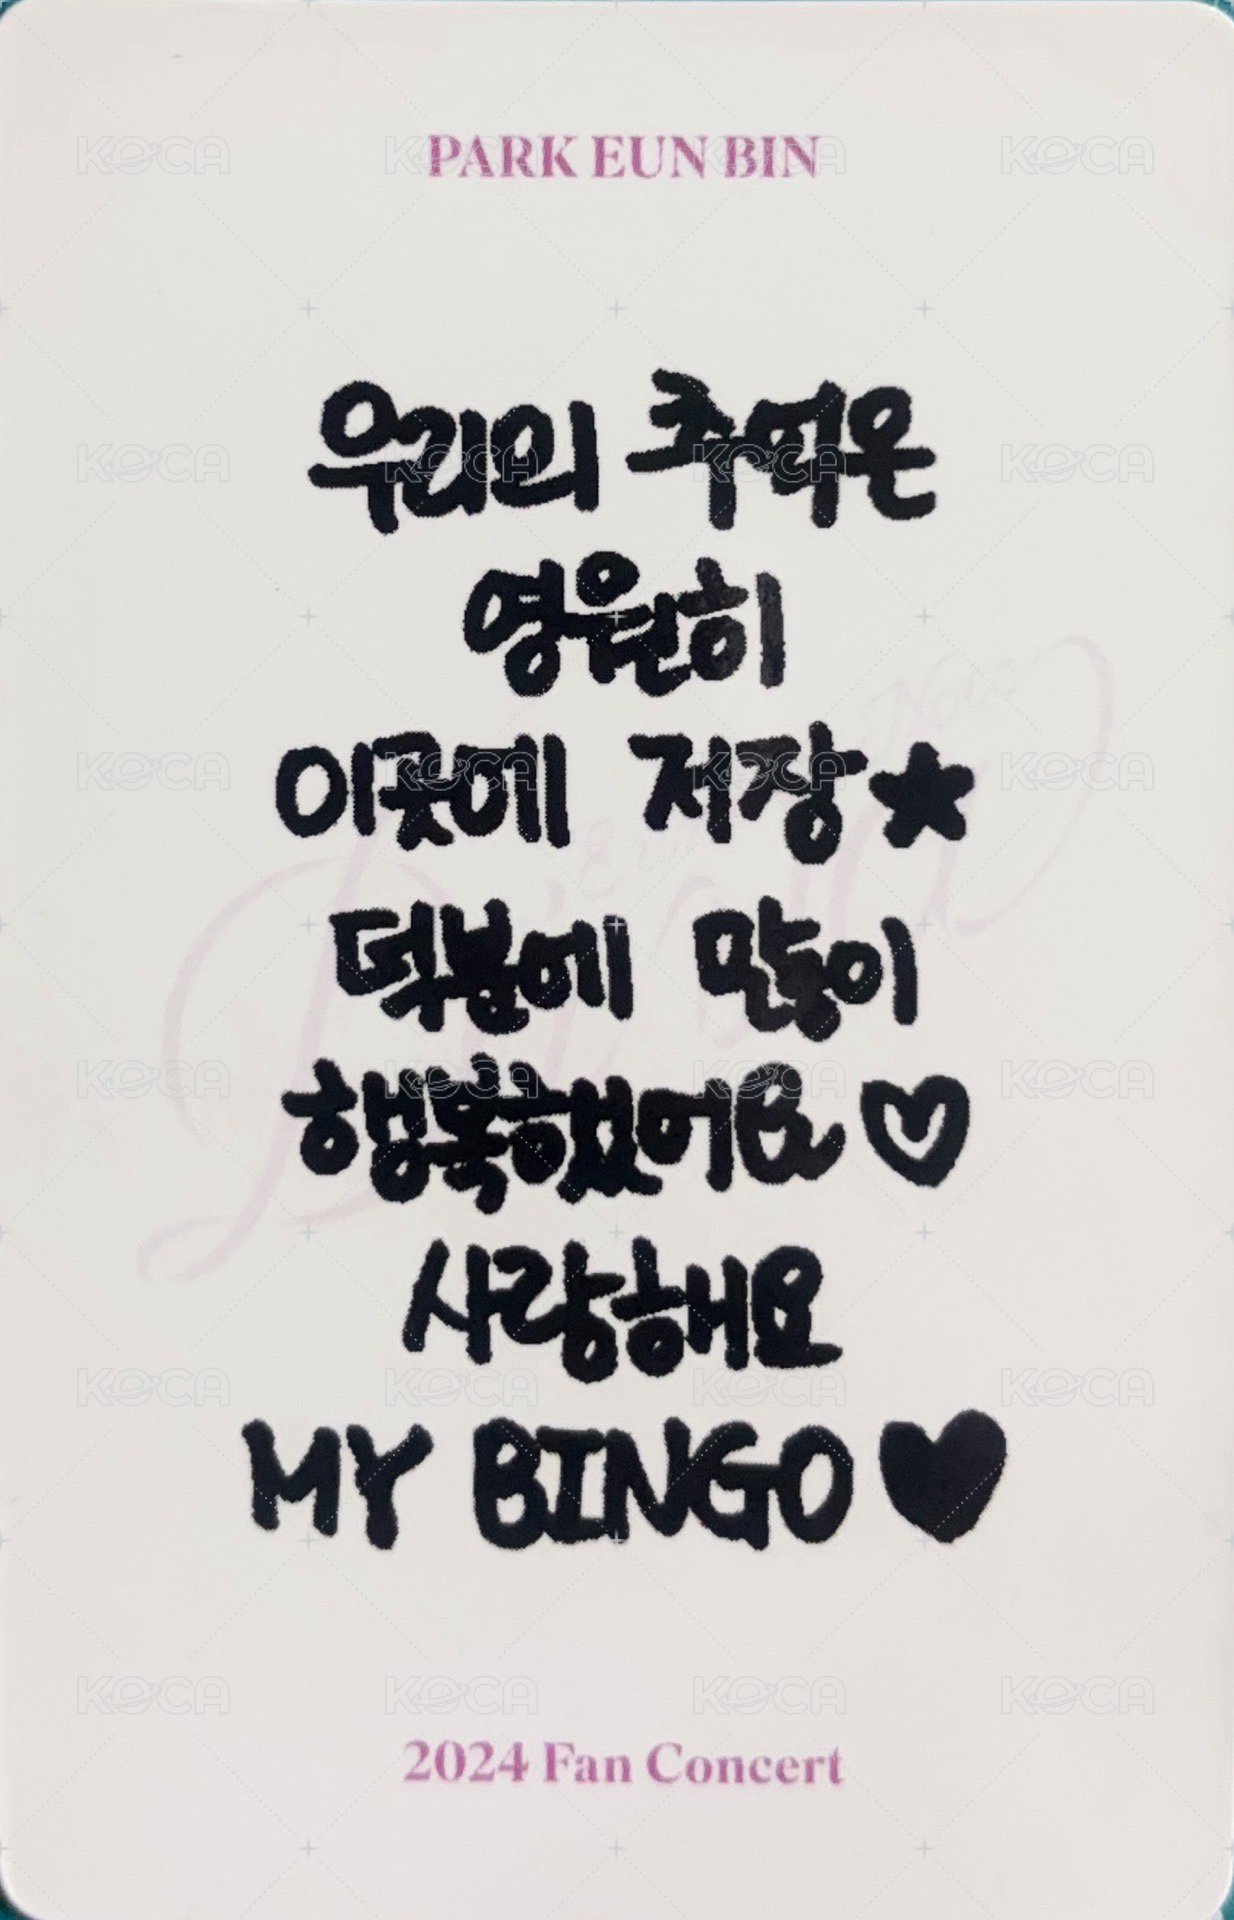 PARK EUN BIN
우리의 추억은
영원히
이곳에 저장★
덕분에 많이
행복했어요♡
사랑해요
MY BINGO♥
2024 Fan Concert
KOCA